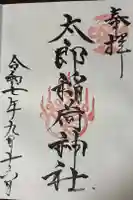 奉拝
太郎稲荷神社
令和七年九月十六日